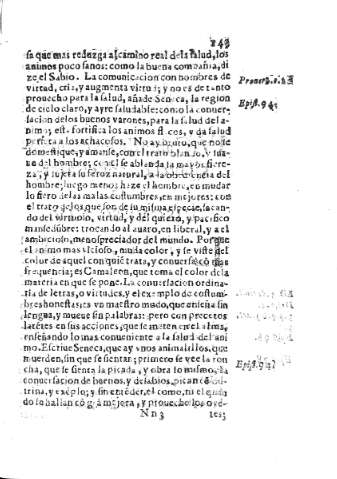 243
sa que mas reduzga al camino real de la salud, los
animos poco sanos: como la buena compañia, di
ze el Sabio. La comunicacion con nombres de
virtud, cria, y augmenta virtud; y no es de tanto
prouecho para la salud, añade Seneca, la region
de cielo claro, y ayre saludable: como la conuer-
sacion de los buenos varones, para la salud del a-
nimo; esta fortifica los animos flacos, y da salud
perfeta a los achacosos. No ay bruto, que no se
domestique, y amanse, con el trato blando, y sua-
ue del hombre; con el se ablanda la mayor fiere-
za, y sujeta su feroz natural, a la obediencia del
hombre; luego menos haze el hombre, en mudar
lo fiero de las malas costumbres, en mejores; con
el trato de los que son de su misma especie, sacan-
do del virtuoso, virtud, y del quieto, y pacifico
mansedũbre: trocando al auaro, en liberal, y al
ambicioso, menospreciador del mundo. Porque
el animo mas vicioso, muda color, y se viste del
color de aquel con quiẽ trata, y conuersa cõ mas
frequencia; es Camaleon, que toma el color de la
materia en que se pone. La conuersacion ordina-
ria de letras, o virtudes, y el exemplo de costum-
bres honestas, es vn maestro mudo, que enseña sin
lengua, y mueue sin palabras: pero con preceptos
latẽtes en sus acciones, que se meten en el alma,
enseñando lo mas conueniente a la salud del ani
mo. Escriue Seneca, que ay vnos animalillos, que
muerden, sin que se sientan; primero se vee la ron
cha, que se sienta la picada, y obra lo mismo, la
conuersacion de buenos, y de sabios, pican cõ do-
trina, y exẽplo; y sin entẽder, el como, ni el quan
do se hallan cõ grã mejora, y prouecho los oye-
Nn 3
Prouerb.
Epist. 94.
Epist. 94.